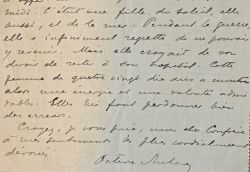 midi. C'était une fille du soleil, elle
aussi, et de la mer. Pendant la guerre
elle a infiniment regretté de ne pouvoir
y revenir. Mais elle croyait de son
devoir de rester à son hôpital. Cette
femme de quatre vingt dix ans a montré
alors une énergie et une volonté admi
rables. Elles lui font pardonner bien
des erreurs.
Croyez, je vous prie, mon cher Confrère
à mes sentiments les plus cordialement
dévoués